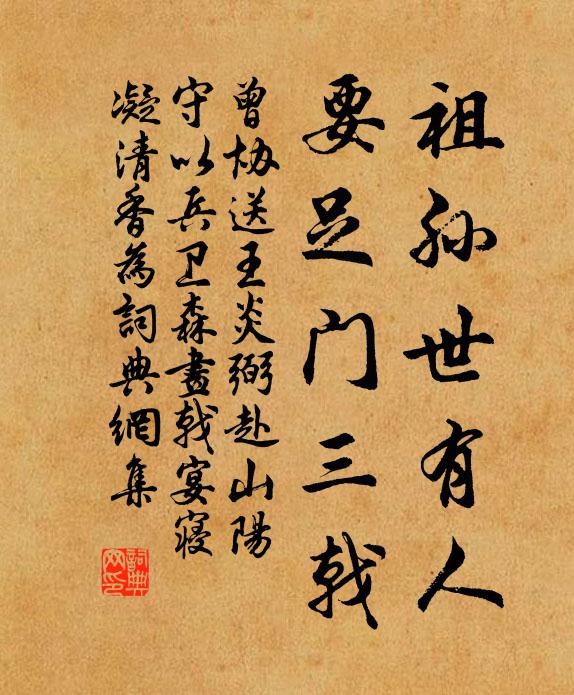 祖孙世有人
要足门三戟
曾协送王炎弼赴山陽
守以兵卫森畫戟宴寝
凝清香為詞典網集
詞典网印